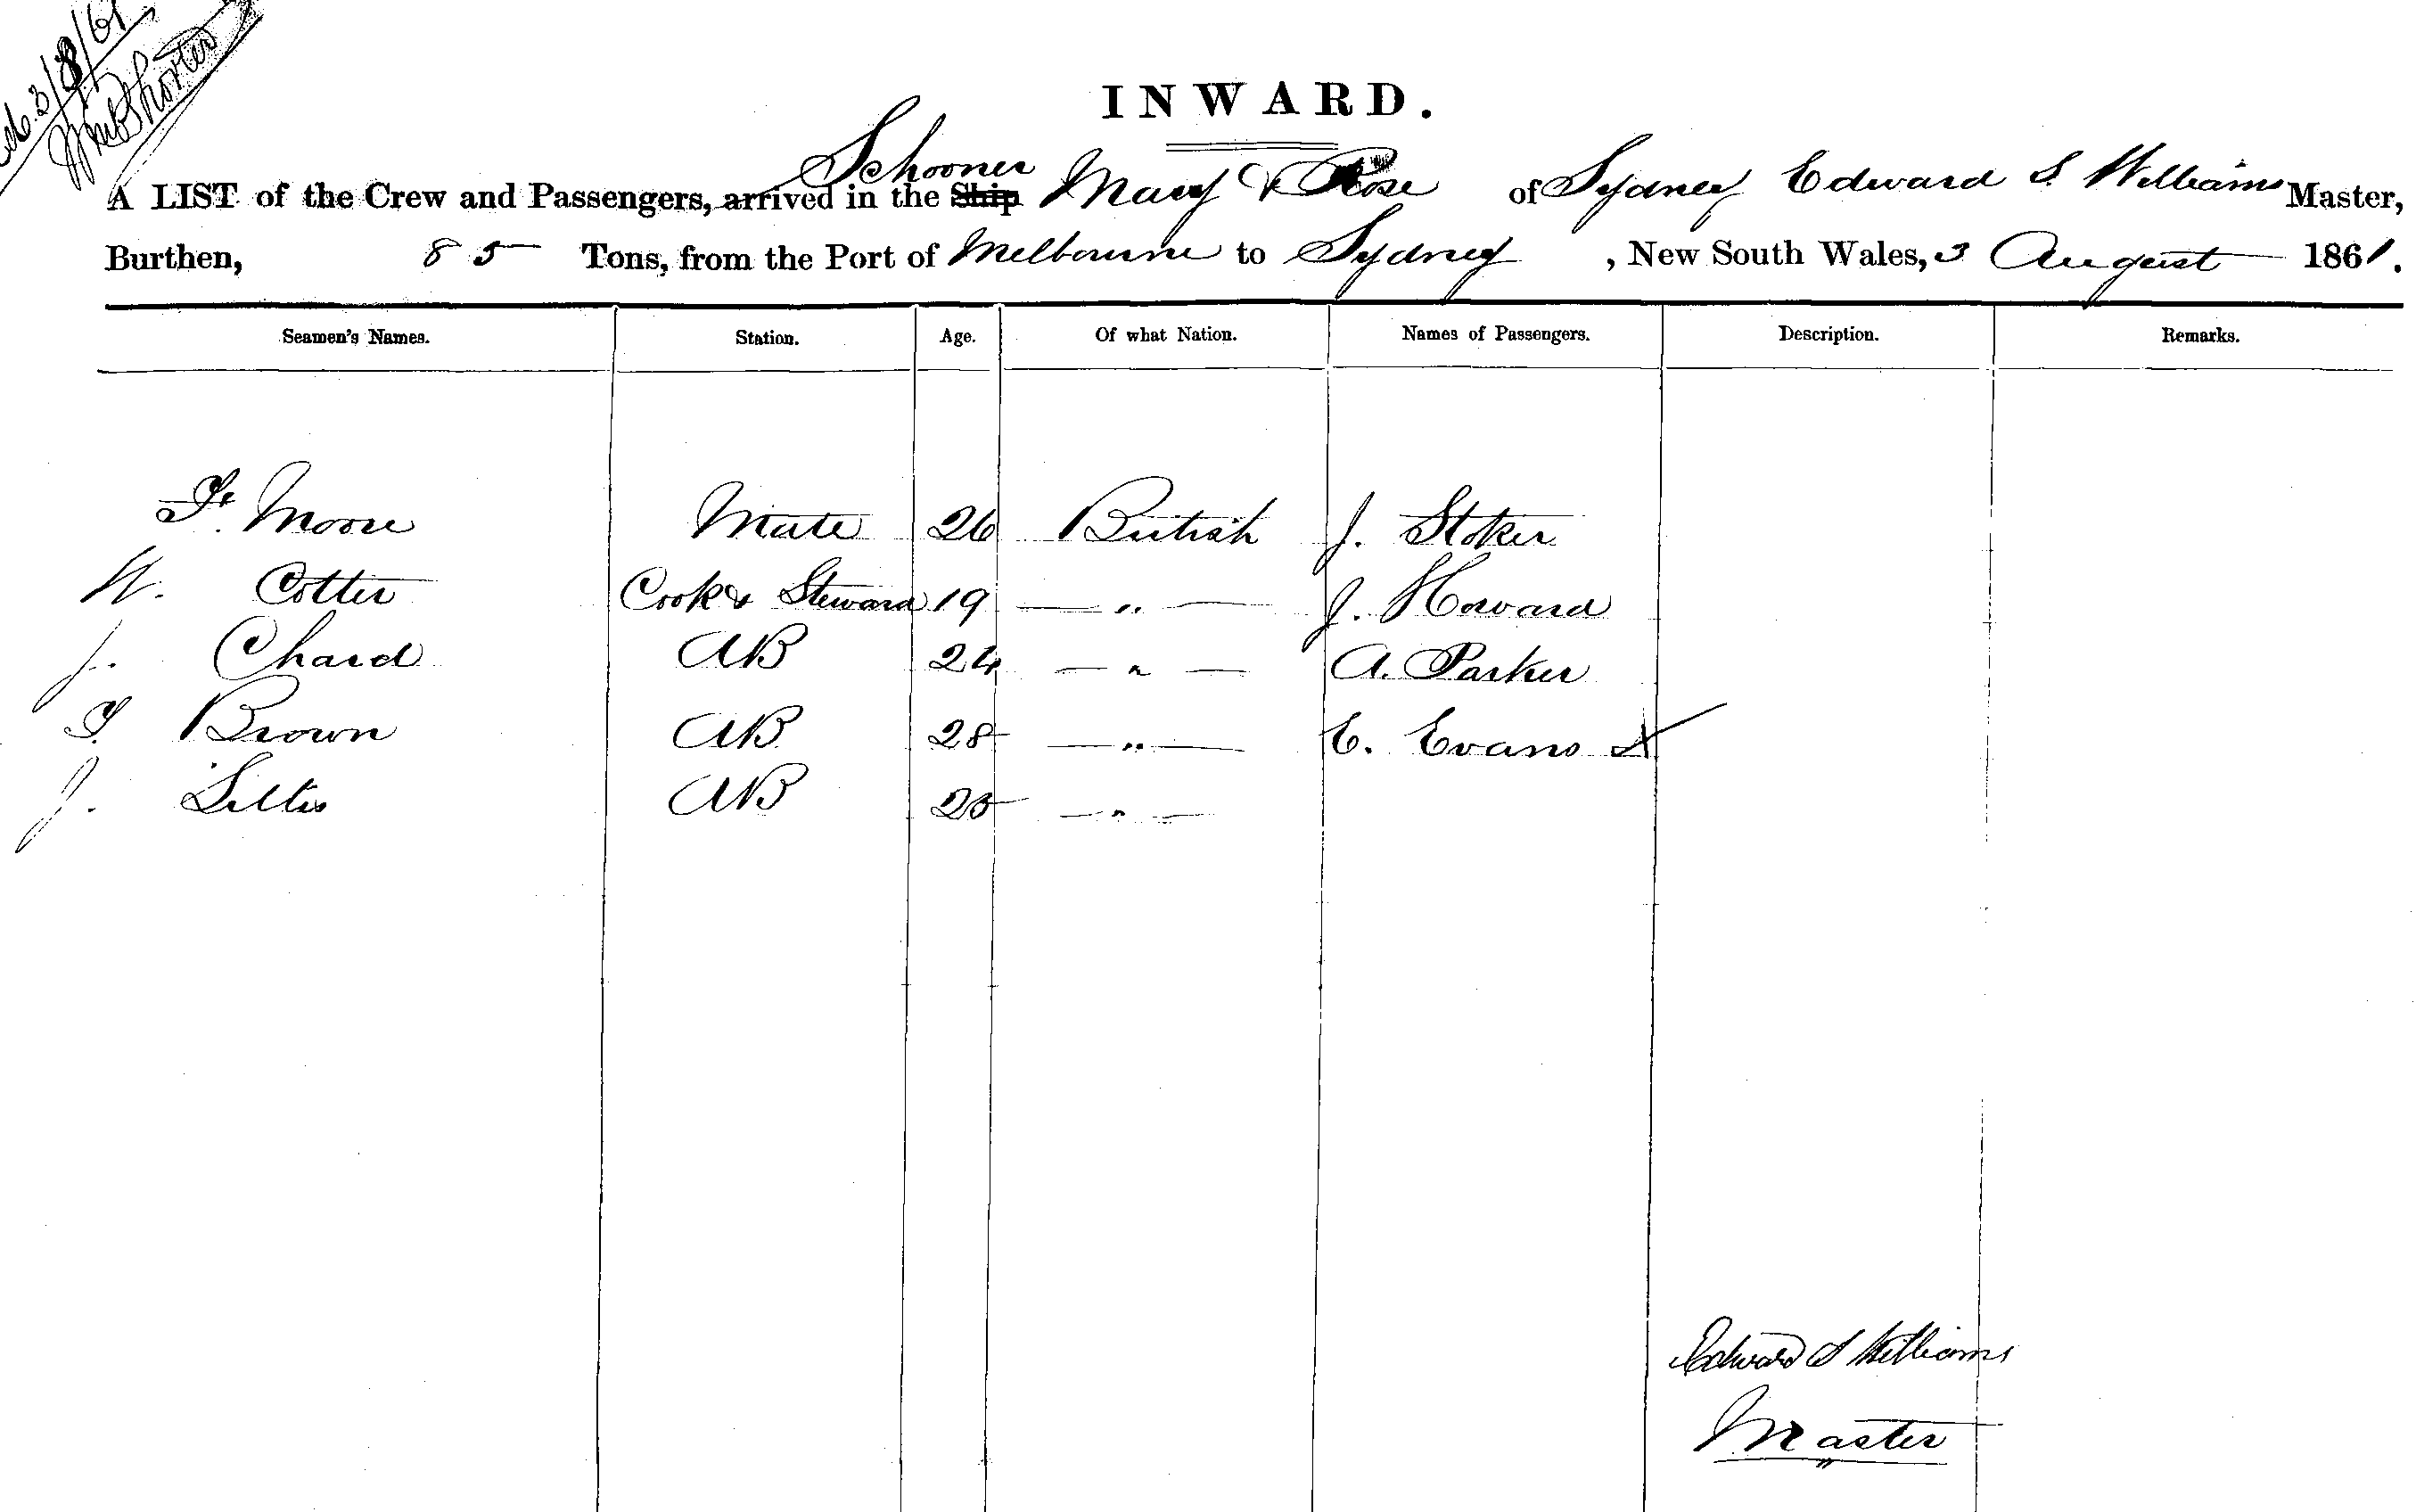 3/8/61
INWARD.
Schooner
A LIST of the Crew and Passengers, arrived in the Ship Mary & Rose of Sydney Edward S. Williams Master,
Burthen, 85 Tons, from the Port of Melbourne to Sydney, New South Wales, 3 August 1861.
Seamen's Names. Station. Age. Of what Nation. Names of Passengers. Description. Remarks.
Moore Mate 26 British J. Stoker
W. Cotter Cook & Steward 19 " J. Howard
J. Chard AB 24 " A. Parker
Brown AB 28 " E. Evans
J. AB 25 "
Edward S Williams
Master